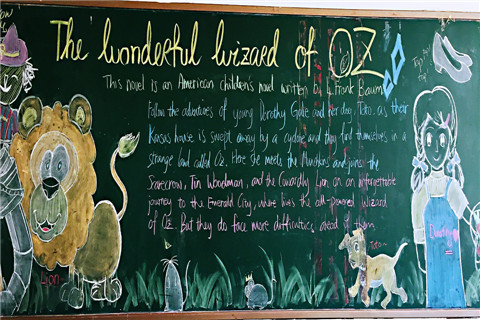 The wonderful wizard of OZ
This novel is an American children's novel written by L Frank Baum
Follow the adventures of young Dorothy Gale and her dog, Toto, as their
Kansas house is swept away by a cyclone and they find themselves in a
strange land called Oz. Here she meets the Munchkins and joins the
Scarecrow, Tin Woodman, and the Cowardly Lion on an unforgettable
journey to the Emerald City, where lives the all-powered Wizard
of Oz. But they do face more difficulties ahead of them
Lion